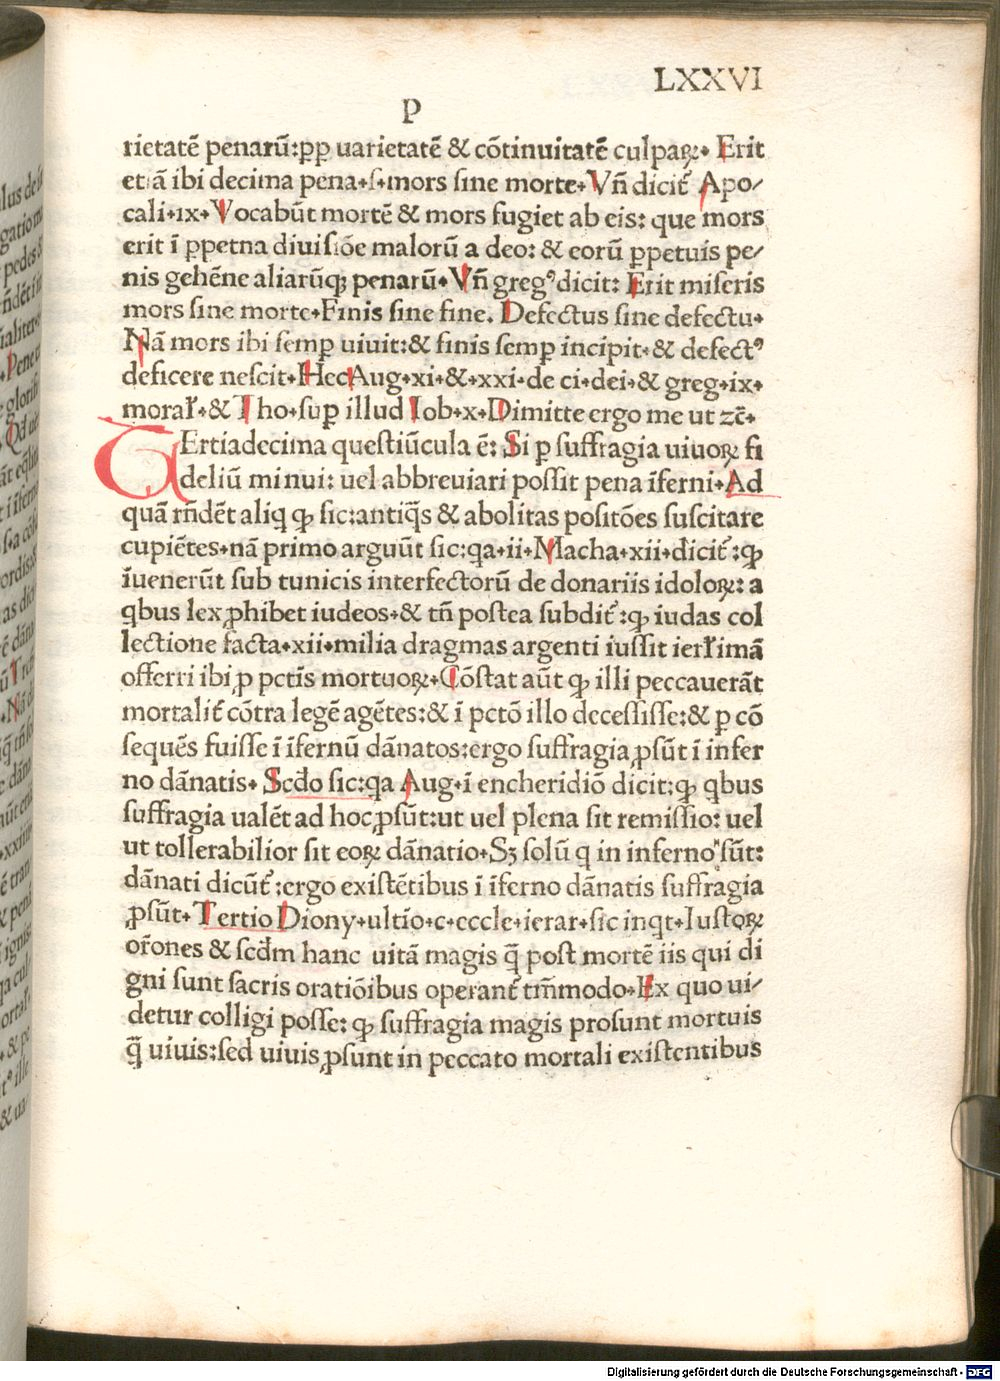 LXXVI
P
rietatē penarū:ꝑp uarietatē & cōtinuitatē culpaꝝ. Erit
etiā ibi decima pena.s.mors sine morte.Vn̄ dicit᷑ Apo/
cali.ix.Vocabūt mortē & mors fugiet ab eis: que mors
erit ī ꝑpetna diuisiōe malorū a deo: & eorū ꝑpetuis pe/
nis gehēne aliarūqꝫ penarū.Vn̄ gregꝰ dicit: Erit miseris
mors sine morte.Finis sine fine. Defectus sine defectu.
Nā mors ibi semꝑ uiuit:& finis semꝑ incipit.& defectꝰ
deficere nescit.Hec Aug.xi.&.xxi.de ci.dei.& greg.ix.
moraƚ.& Tho.suꝑ illud Iob.x.Dimitte ergo me ut zc̄.
TErtiadecima questiūcula ē: Si ꝑ suffragia uiuoꝝ fi
deliū minui: uel abbreuiari possit pena īferni.Ad
quā rn̄dēt aliq̇ ꝙ sic:antiq̇s & abolitas positōes suscitare
cupiētes.nā primo arguūt sic:qa.ii.Macha.xii.dicit᷑:ꝙ
īuenerūt sub tunicis interfectorū de donariis idoloꝝ: a
q̇bus lex ꝓhibet iudeos.& tn̄ postea subdit᷑:ꝙ iudas col
lectione facta.xii.milia dragmas argenti iussit ierƚimā
offerri ibi ꝓ pctīs mortuoꝝ.Cōstat aūt ꝙ illi peccauerāt
mortalit᷑ cōtra legē agētes:& ī pctō illo decessisse:& ꝑ cō
sequēs fuisse ī īfernū dānatos:ergo suffragia ꝓsūt ī infer
no dānatis. Scdo sic:qa Aug.ī encheridiō dicit:ꝙ q̇bus
suffragia ualēt ad hoc ꝓsūt:ut uel plena sit remissio: uel
ut tollerabilior sit eoꝝ dānatio.Sꝫ solū q̇ in inferno sūt:
dānati dicūt᷑:ergo existētibus ī īferno dānatis suffragia
ꝓsūt. Tertio Diony.ultīo.c.eccle.ierar.sic inq̇t.Iustoꝝ
or̄ones & scdm̄ hanc uitā magis q̄ post mortē iis qui di
gni sunt sacris oratiōibus operant᷑ tm̄modo.Ex quo ui/
detur colligi posse: ꝙ suffragia magis prosunt mortuis
q̄ uiuis:sed uiuis ꝓsunt in peccato mortali existentibus
Digitalisierung gefördert durch die Deutsche Forschungsgemeinschaft - DFG